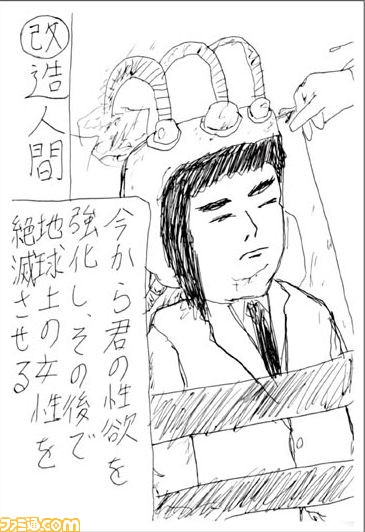 改造人間
今から君の性欲を
強化し、その後で
地球上の女性を
絶滅させる
ファミ通.com